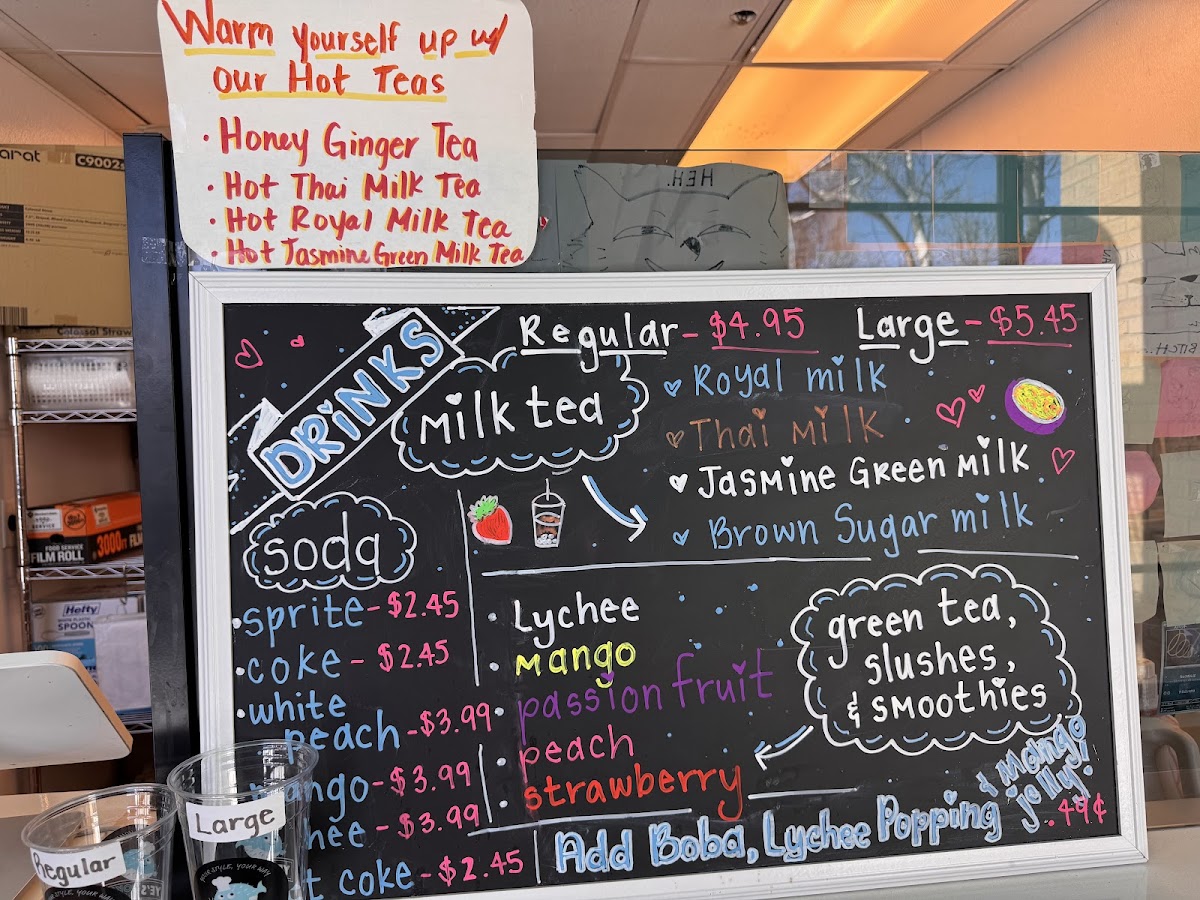 Warm yourself up w/
our Hot Teas
• Honey Ginger Tea
• Hot Thai Milk Tea
• Hot Royal Milk Tea
• Hot Jasmine Green Milk Tea
HEH.
C9002
Colossal Straw
FOOD SERVICE
FILM ROLL
3000
Hefty
SPOON
DRINKS
Regular - $4.95 Large - $5.45
Milk tea
Royal milk
Thai Milk
Jasmine Green Milk
Brown Sugar milk
soda
• sprite - $2.45
• coke - $2.45
• white
peach - $3.99
mango - $3.99
hee - $3.99
t coke - $2.45
• Lychee
• Mango
• passion fruit
• peach
• strawberry
green tea,
slushes,
& smoothies
Add Boba, Lychee Popping & Mango
jelly! .49¢
Regular
Large
YOUR STYLE, YOUR WAY